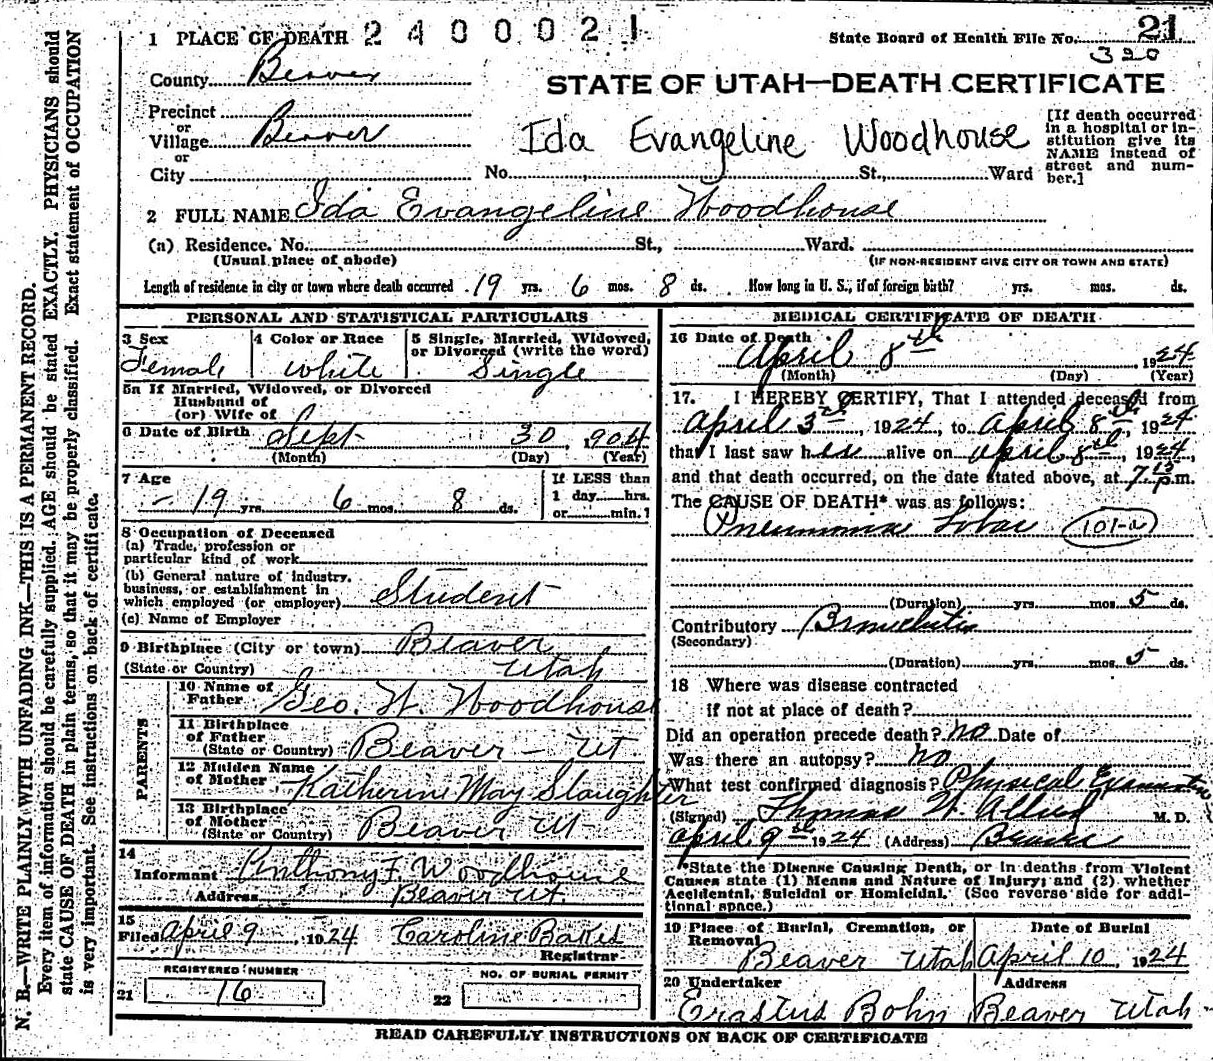 1 PLACE OF DEATH 2400021
State Board of Health File No. 21
320
County Beaver
STATE OF UTAH—DEATH CERTIFICATE
Precinct
or
Village Beaver
or
City
Ida Evangeline Woodhouse
No. St., Ward
[If death occurred
in a hospital or in-
stitution give its
NAME instead of
street and num-
ber.]
2 FULL NAME Ida Evangeline Woodhouse
(a) Residence. No. St., Ward.
(Usual place of abode) (IF NON-RESIDENT GIVE CITY OR TOWN AND STATE)
Length of residence in city or town where death occurred 19 yrs. 6 mos. 8 ds. How long in U. S., if of foreign birth? yrs. mos. ds.
PERSONAL AND STATISTICAL PARTICULARS
3 Sex Female
4 Color or Race White
5 Single, Married, Widowed,
or Divorced (write the word)
Single
5a If Married, Widowed, or Divorced
Husband of
(or) Wife of
6 Date of Birth Sept 30, 1904
(Month) (Day) (Year)
7 Age
19 yrs. 6 mos. 8 ds.
If LESS than
1 day hrs.
or min.?
8 Occupation of Deceased
(a) Trade, profession or
particular kind of work
(b) General nature of industry,
business, or establishment in
which employed (or employer) Student
(c) Name of Employer
9 Birthplace (City or town) Beaver
(State or Country) Utah
PARENTS
10 Name of
Father Geo. W. Woodhouse
11 Birthplace
of Father
(State or Country) Beaver - Ut
12 Maiden Name
of Mother Katherine May Slaughter
13 Birthplace
of Mother
(State or Country) Beaver Ut
14
Informant Anthony F. Woodhouse
Address Beaver Ut.
15
Filed April 9, 1924 Caroline Bakes
Registrar
REGISTERED NUMBER
21 16
NO. OF BURIAL PERMIT
22
MEDICAL CERTIFICATE OF DEATH
16 Date of Death
April 8th, 1924
(Month) (Day) (Year)
17. I HEREBY CERTIFY, That I attended deceased from
April 3th, 1924, to April 8th, 1924
that I last saw her alive on April 8th, 1924,
and that death occurred, on the date stated above, at 7 15 p.m.
The CAUSE OF DEATH* was as follows:
Pneumonae Lobar 101-a
(Duration) yrs. mos. 5 ds.
Contributory Bronchitis
(Secondary)
(Duration) yrs. mos. 5 ds.
18 Where was disease contracted
if not at place of death?
Did an operation precede death? no Date of
Was there an autopsy? no
What test confirmed diagnosis? Physical
(Signed) Thomas W. M. D.
April 9th 1924 (Address) Beaver
*State the Disease Causing Death, or in deaths from Violent
Causes state (1) Means and Nature of Injury; and (2) whether
Accidental, Suicidal or Homicidal. (See reverse side for addi-
tional space.)
19 Place of Burial, Cremation, or
Removal
Beaver Utah
Date of Burial
April 10, 1924
20 Undertaker
Erastus Bohn
Address
Beaver Utah
READ CAREFULLY INSTRUCTIONS ON BACK OF CERTIFICATE
N. B.—WRITE PLAINLY WITH UNFADING INK—THIS IS A PERMANENT RECORD.
Every item of information should be carefully supplied. AGE should be stated EXACTLY. PHYSICIANS should
state CAUSE OF DEATH in plain terms, so that it may be properly classified. Exact statement of OCCUPATION
is very important. See instructions on back of certificate.